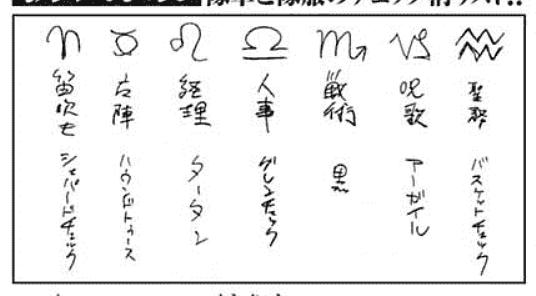 隊章と隊服のチェック柄リスト!!
♒ バスケットチェック
♑ 呪歌 アーガイル
♏ 戦術 黒
♎ 人事 グレンチェック
♌ 経理 タータン
♉ ハウンドトゥース
♈ 笛吹き シェパードチェック